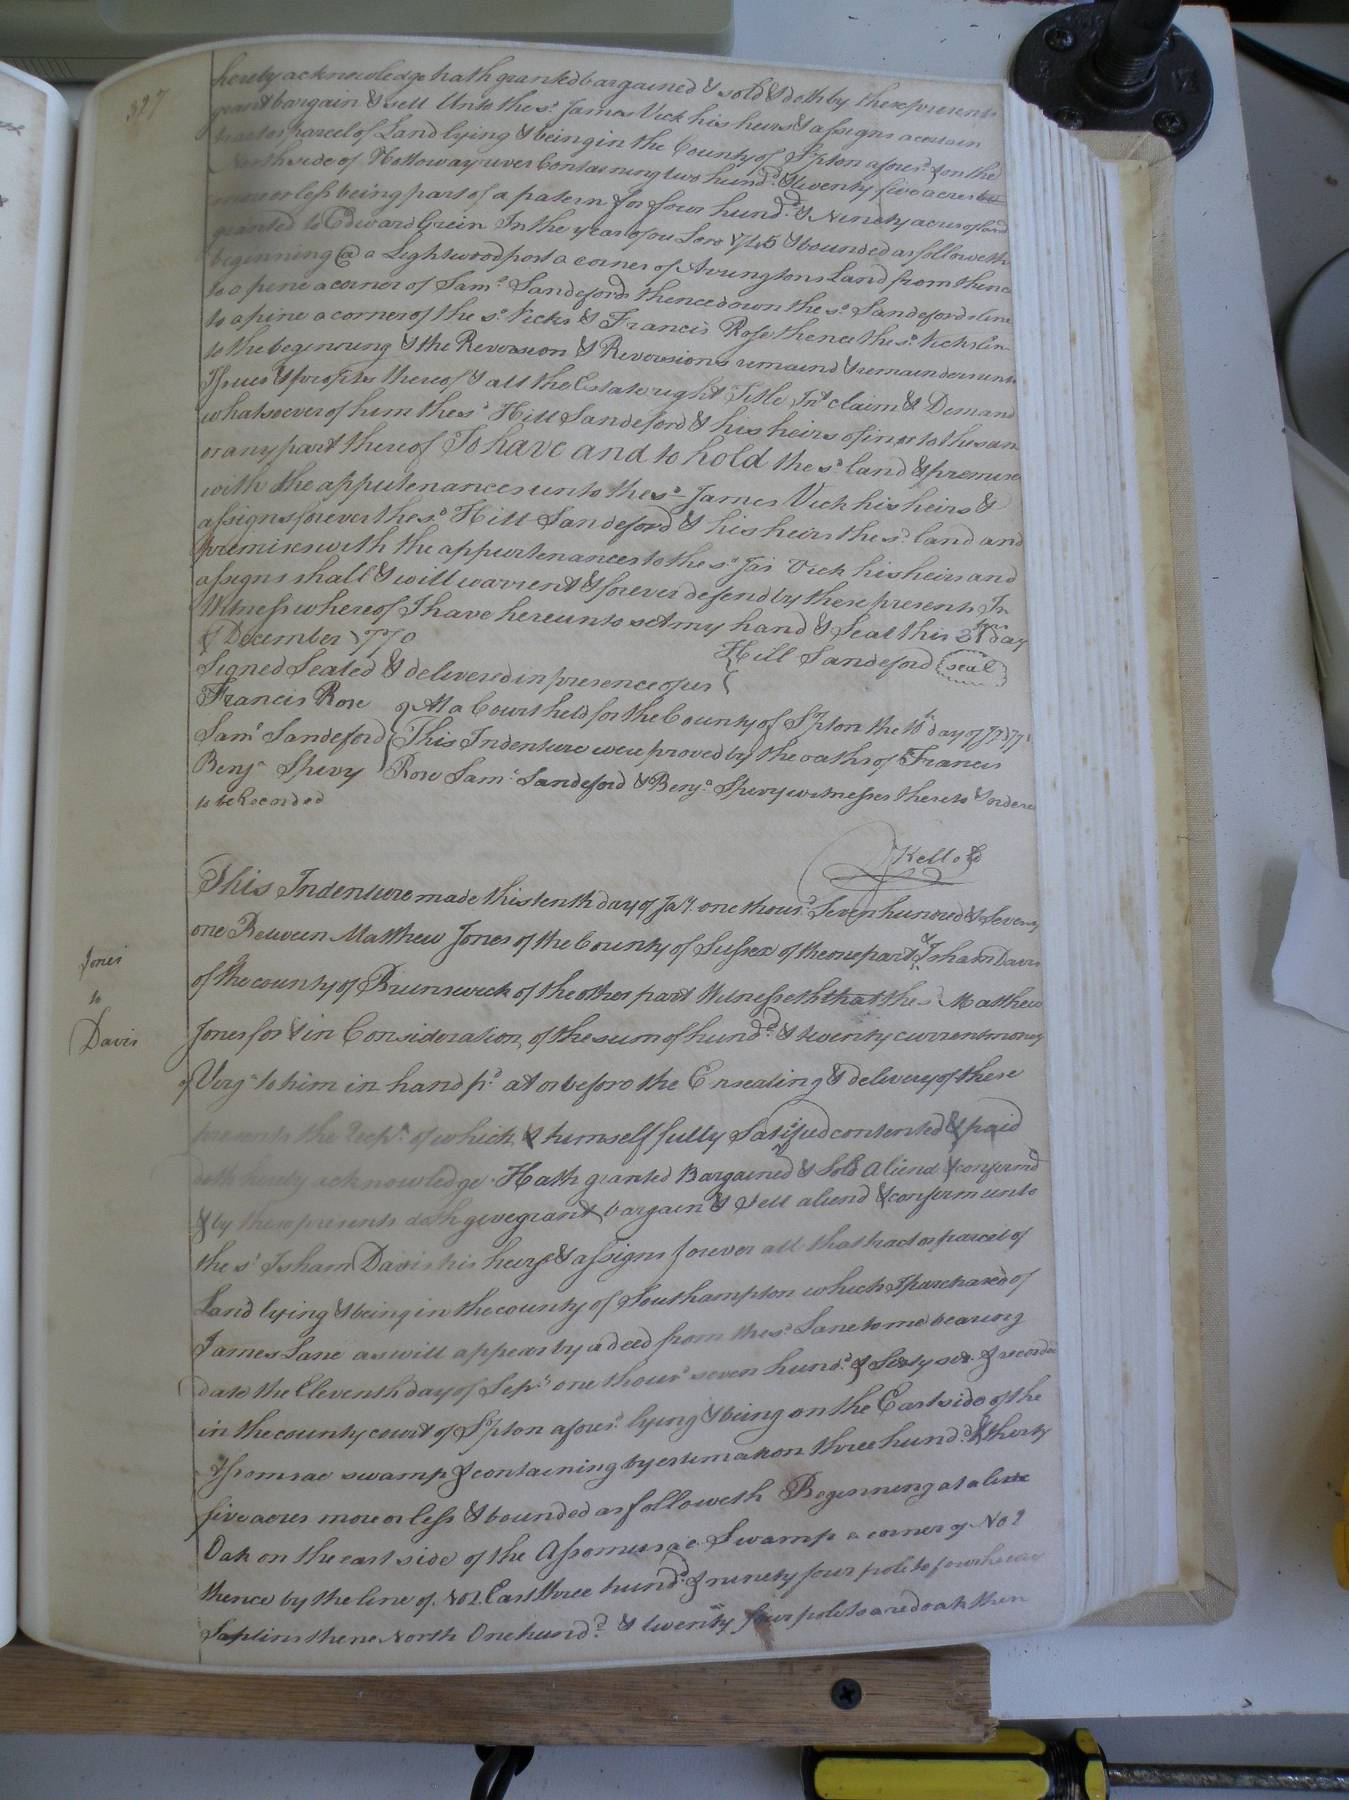 327
hereby acknowledge hath granted bargained & sold & doth by these presents
grant bargain & sell Unto the sd. James Vick his heirs & assigns a certain
tract or parcel of Land lying & being in the County of S°pton afores.d & on the
North side of Holloway river Containing two hund.d & twenty five acres be
more or less being part of a patern for four hund.d & Ninety acres of land
granted to Edward Grein In the year of ou Lord 1745 & bounded as followeth
beginning @ a Lightwood post a corner of Avringtons Land from thence
to a pine a corner of Sam.l Sandefords thence down the s.d Sandefords line
to a pine a corner of the s.d Vicks & Francis Rose thence the s.d Vicks line
to the beginning & the Reversion & Reversions remaind & remainders rents
Issues & profits thereof & all the Estate right Title Int. claim & Demand
whatsoever of him the s.d Hill Sandeford & his heirs of in or to the sam
or any part thereof To have and to hold the s.d land & premises
with the apputenances unto the s.d James Vick his heirs &
assigns forever the s.d Hill Sandeford & his heirs the s.d land and
premises with the appurtenances to the s.d Jas Vick his heirs and
assigns shall & will warrent & forever defend by these presents In
Witness whereof I have hereunto set my hand & Seal this day
of December 1770
Hill Sandeford seal
Signed Sealed & delivered in presence of us
Francis Rose
At a Court held for the County of S°pton the 10th day of
Sam.l Sandeford
This Indenture were proved by the oaths of Francis
Benj.a Spivy
Rose Sam.l Sandeford & Benj.a Spivy witnesses thereto & ordered
to be Recorded
Kello
This Indenture made this tenth day of Ja.y one thous.d Seven hundred & Seventy
one Between Matthew Jones of the County of Sussex of the one part & Isham Davis
Jones
to
Davis
of the county of Brunswick of the other part Witnesseth that the s.d Matthew
Jones for & in Consideration of the sum of hund.d & twenty current money
of Virg.a to him in hand p.d at or before the Ensealing & delivery of these
presents the Recp.t of which & himself fully Satisfied contented & paid
doth hereby acknowledge Hath granted Bargained & Sold Aliend & confirmd
& by these presents doth give grant bargain & sell aliend & confirm unto
the s.d Isham Davis his heirs & assigns forever all that tract or parcel of
Land lying & being in the county of Southampton which I purchased of
James Lane as will appear by a deed from the s.d Lane to me bearing
date the Eleventh day of Sep.r one thous.d seven hund.d & Sixty six & recorded
in the county court of S°pton afores.d lying & being on the East side of the
Assomsac swamp & containing by estimation three hund.d & thirty
five acres more or less & bounded as followeth Beginning at a live
Oak on the east side of the Assomusac Swamp a corner of No 2
thence by the line of No 2 East three hund.d & ninety four pole to four hicory
Saplins thence North One hund.d & twenty four pole to a red oak then